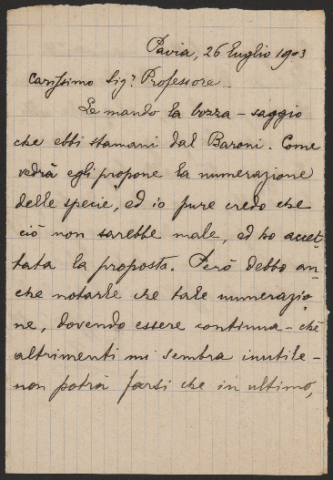 Pavia, 26 Luglio 1903
Carissimo Sig.r Professore
Le mando la bozza-saggio
che ebbi stamani dal Baroni. Come
vedrà egli propone la numerazione
delle specie, ed io pure credo che
ciò non sarebbe male, ed ho accet-
tata la proposta. Però debbo an-
che notarle che tale numerazio-
ne, dovendo essere continua - chè
altrimenti mi sembra inutile -
non potrà farsi che in ultimo,